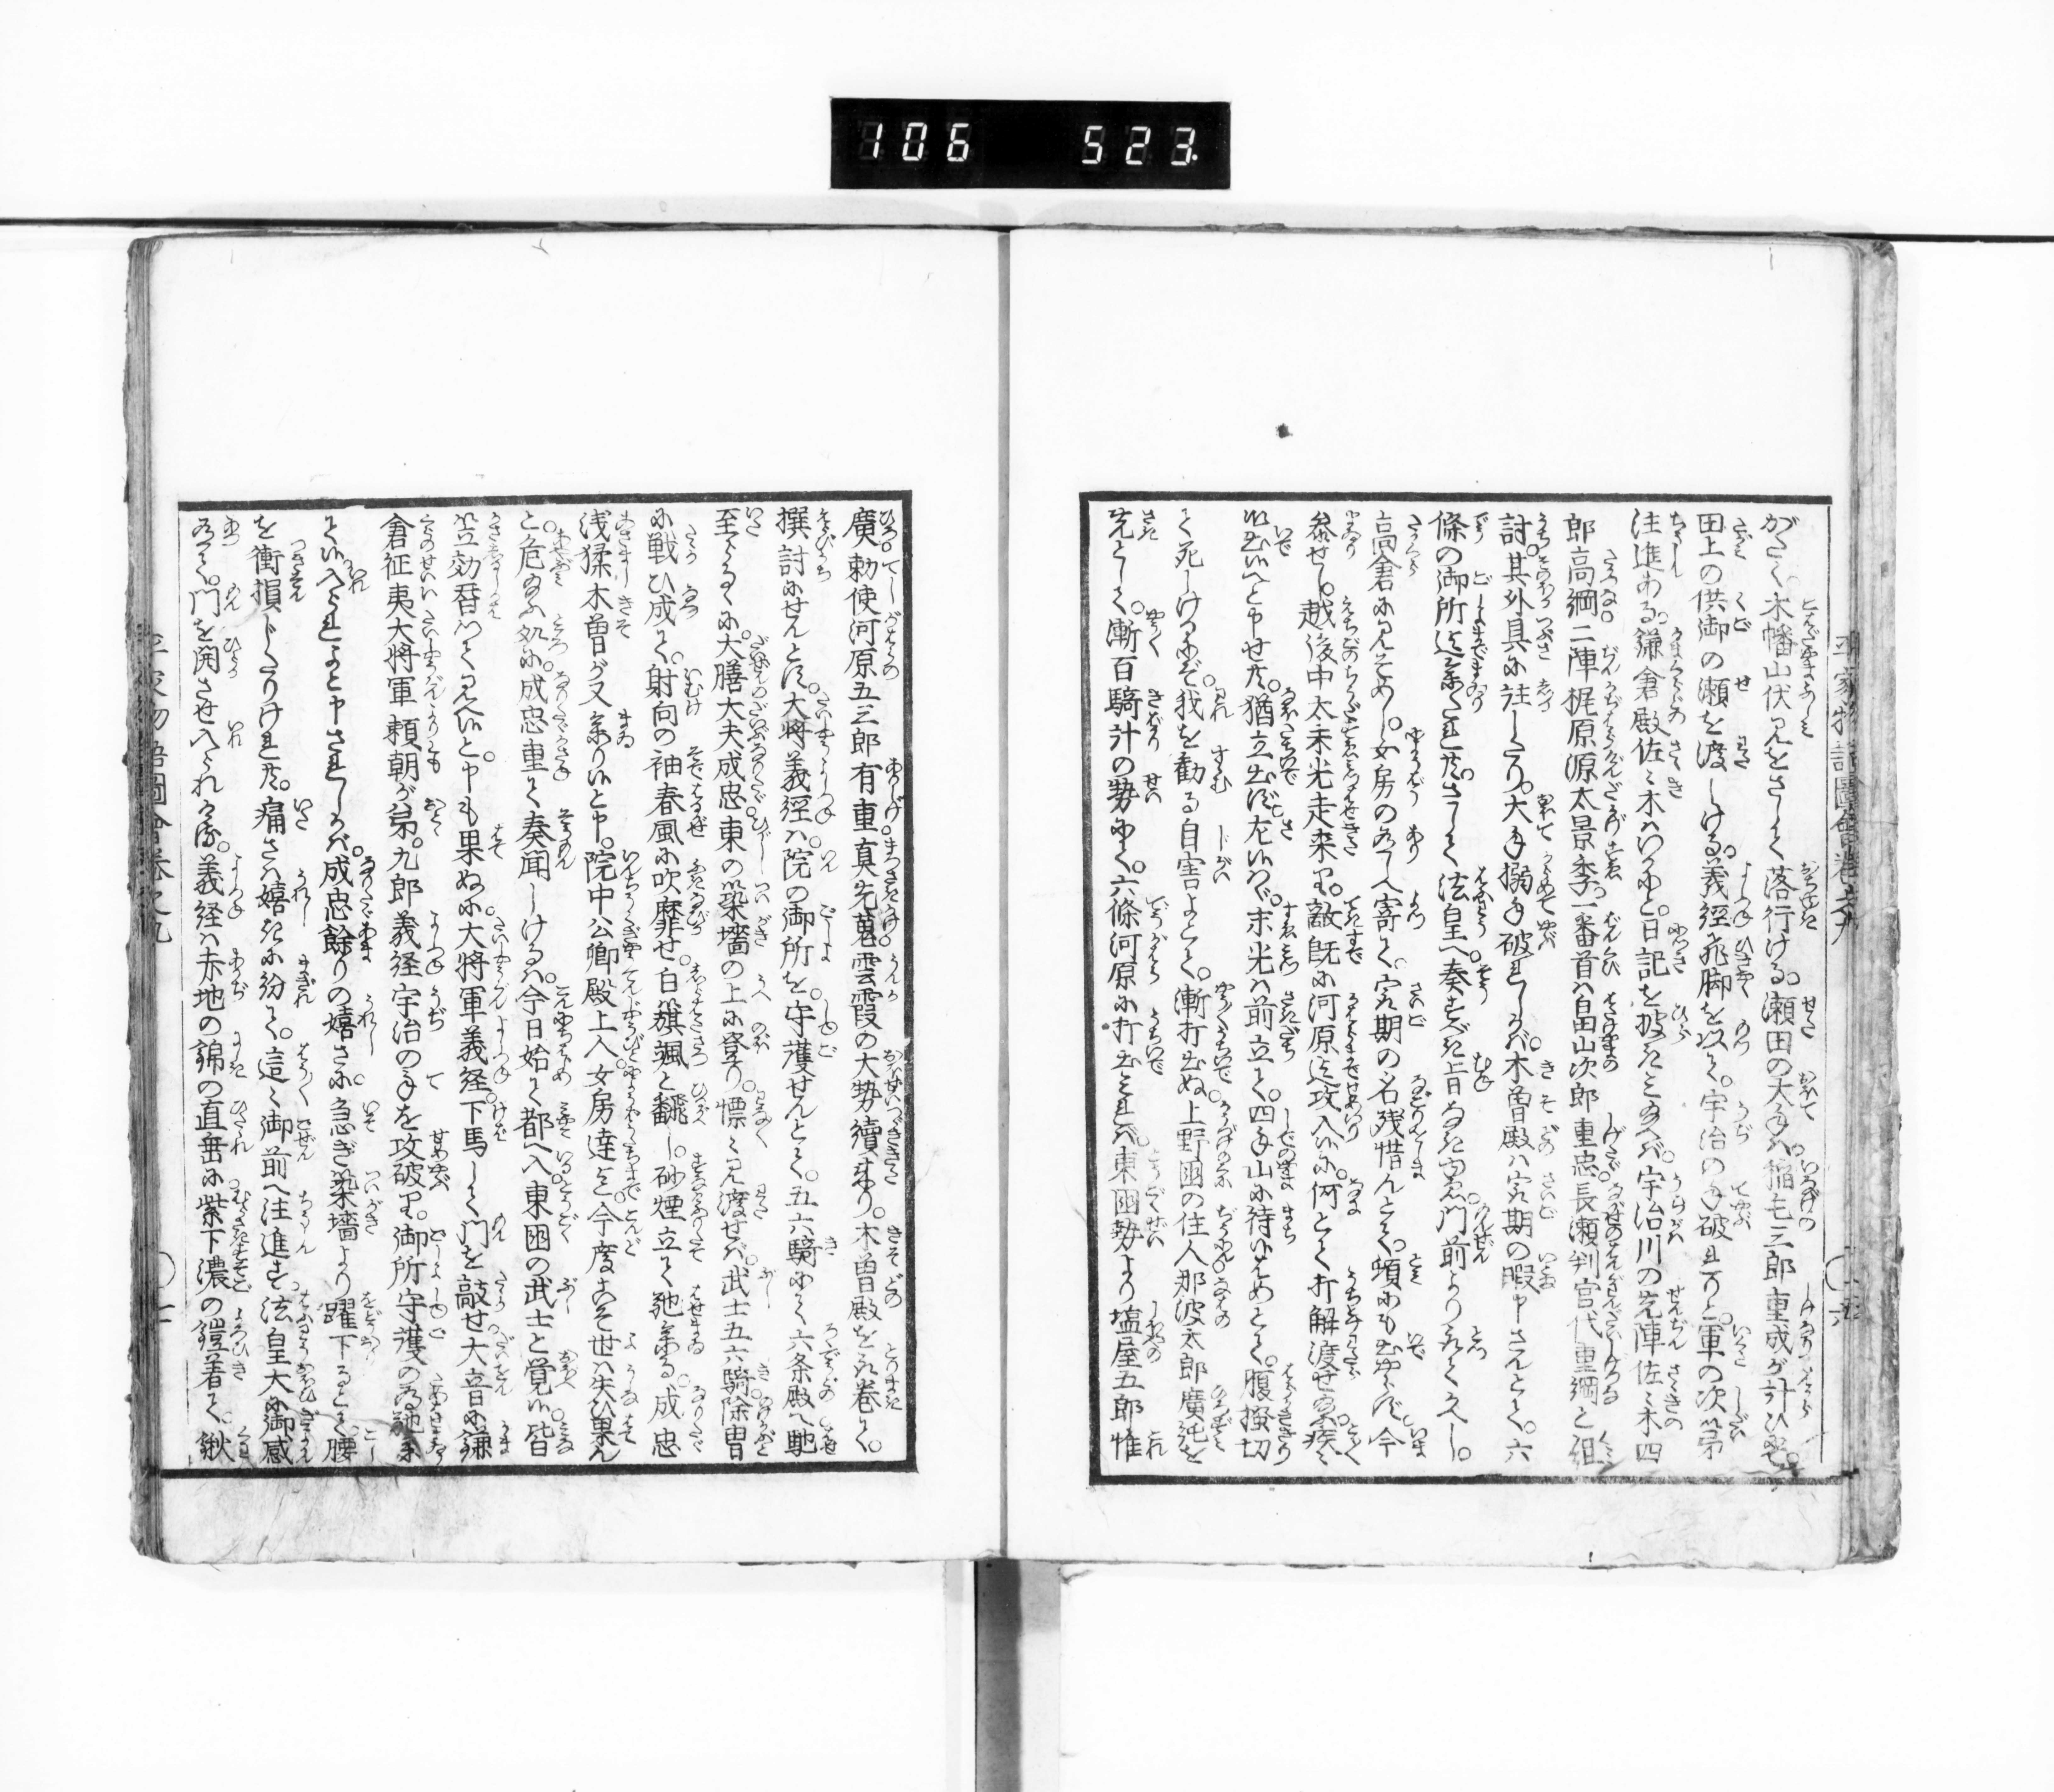 106 523
がたく。木幡山伏見をさして落行ける。瀬田の大手ハ。稲毛三郎重成が計ひにて。
田上の供御の瀬を渡しける。義經飛脚を以て。宇治の手破れりと。軍の次第
注進ある。鎌倉殿佐々木ハいかにと。日記を披きミ給へバ。宇治川の先陣佐々木四
郎高綱二陣梶原源太景季。一番首ハ畠山次郎重忠長瀬判官代重綱と組
討。其外具に注したり。大手搦手破れしかバ。木曽殿ハ最期の暇申さんとて。六
條の御所迄参たれ共。さして法皇へ奏すべき旨なき
高倉に見そめし。女房の
寄て。最期の名残惜んとて。頓にも出やらず。今
参せし。越後中太末光走来り。敵既に河原迄攻入いに。何とて打解渡せ給ふ。疾々
御出いへと申せ共。猶立出ず。左いハヾ。末光ハ前立て。四手山に待いはめとて。腹掻切
て死しけるにぞ。我を勧る自害よとて。漸打出ぬ。上野国の住人那波太郎廣純を
先として。漸百騎計の勢にて。六條河原に打出ミれバ。東国勢より塩屋五郎惟
廣。勅使河原五三郎有重真先蒐。雲霞の大勢續来り。木曽殿を取巻て。
撰討にせんとす。大将義經ハ。院の御所を。守護せんとて。五六騎にて六条殿へ馳
至らるゝに。大膳大夫成忠。東の築墻の上に登り。慄々見渡せバ。武士五六騎除冑
に戦ひ成て。射向の袖春風に吹靡せ。白旗颯と飜し。砂煙立て馳参る。成忠
浅猱木曽が又参りいと申。院中公卿殿上人。女房達迄。今度こそ世ハ失ひ果ん
と。危給ふ処に。成忠重て奏聞しけるハ。今日始て都へ入東国の武士と覚い。皆
笠効替つて見いと。申も果ぬに。大将軍義経。下馬して門を敲せ大音に鎌
倉征夷大将軍頼朝が弟。九郎義経宇治の手を攻破り。御所守護の為馳参
ていへ。入られよと申されしかバ。成忠餘りの嬉さに。急ぎ築墻より躍下るとて。腰
を衝損じたりけれ共。痛さハ嬉きに紛て。這々御前へ注進す。法皇大に御感
有て。門を開させ入られける。義経ハ赤地の錦の直垂に。紫下濃の鎧着て。鍬
平家物語圖會巻之九